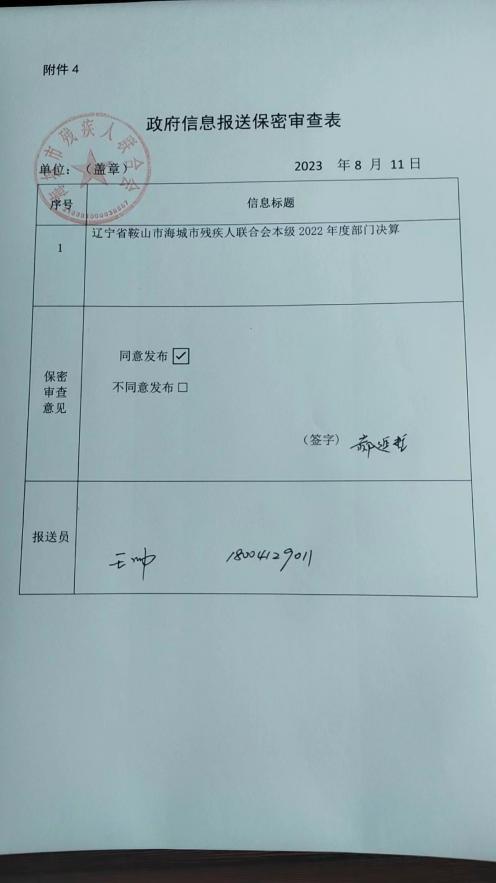 附件 4
政府信息报送保密审查表
市残疾人联合会
单位：（盖章） 2023 年 8 月 11 日
序号 信息标题
1 辽宁省鞍山市海城市残疾人联合会本级 2022 年度部门决算
保密审查意见
同意发布☑
不同意发布□
（签字）
报送员
王帅 18004129011